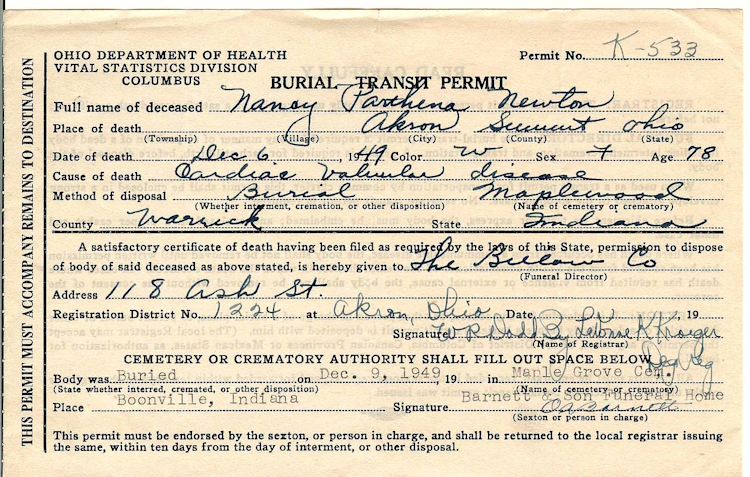 OHIO DEPARTMENT OF HEALTH
VITAL STATISTICS DIVISION
COLUMBUS
Permit No. K-533
BURIAL-TRANSIT PERMIT
Full name of deceased Nancy Parthena Newton
Place of death Akron Summit Ohio
(Township) (Village) (City) (County) (State)
Date of death Dec 6 1949 Color W Sex F Age 78
Cause of death Cardiac Valvular disease
Method of disposal Burial Maplewood
(Whether interment, cremation, or other disposition) (Name of cemetery or crematory)
County Warrick State Indiana
A satisfactory certificate of death having been filed as required by the laws of this State, permission to dispose
of body of said deceased as above stated, is hereby given to The Billow Co
(Funeral Director)
Address 118 Ash St.
Registration District No. 1224 at Akron, Ohio Date 19
Signature W R Dodd By K Kroeger
(Name of Registrar) Dep Reg
CEMETERY OR CREMATORY AUTHORITY SHALL FILL OUT SPACE BELOW
Body was Buried on Dec. 9, 1949 19 in Maple Grove Cem.
(State whether interred, cremated, or other disposition) (Name of cemetery or crematory)
Place Boonville, Indiana Signature Barnett & Son Funeral Home
OABarnett
(Sexton or person in charge)
This permit must be endorsed by the sexton, or person in charge, and shall be returned to the local registrar issuing
the same, within ten days from the day of interment, or other disposal.
THIS PERMIT MUST ACCOMPANY REMAINS TO DESTINATION